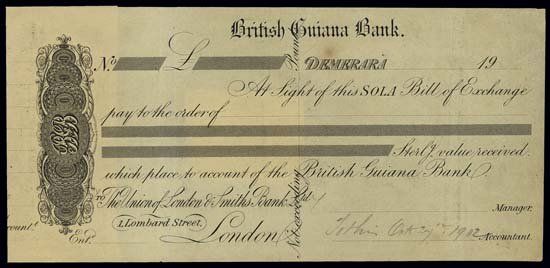 British Guiana Bank.
No £ DEMERARA 19
At Sight of this SOLA Bill of Exchange
pay to the order of
Sterlg. value received.
which place to account of the British Guiana Bank
To The Union of London & Smiths Bank Ld.
Manager.
1, Lombard Street,
London
1902
Accountant.
ount.
Ent.
Not exceeding
BGB